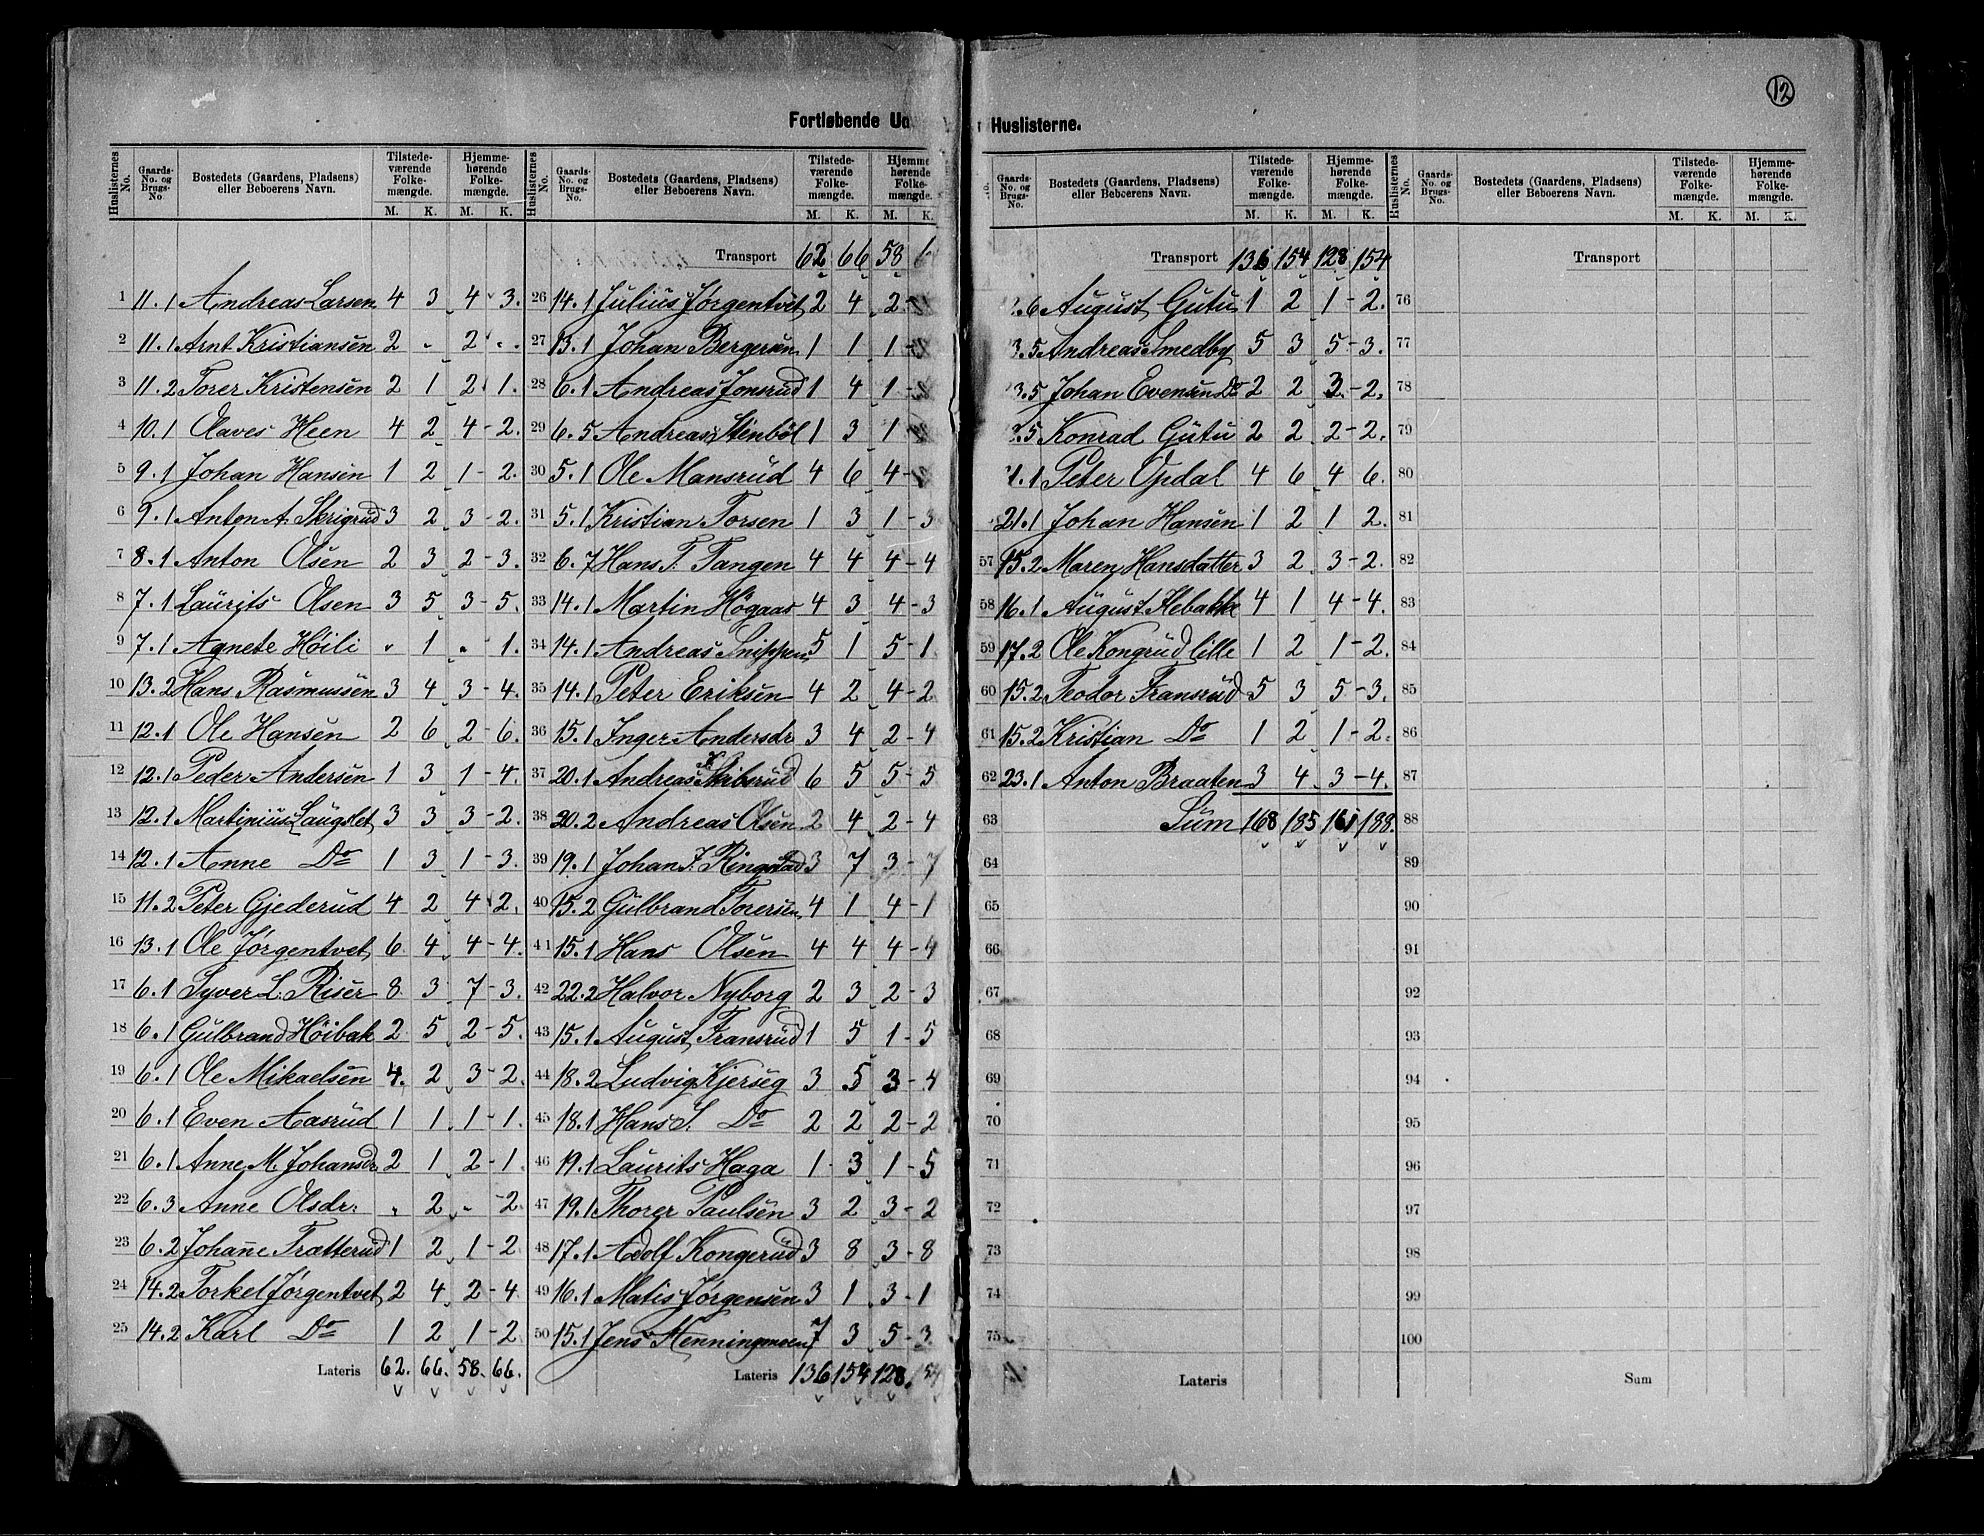 12
Fortløbende Ud
Huslisterne.
Huslisternes No.
Gaards-No. og Brugs-No.
Bostedets (Gaardens, Pladsens) eller Beboerens Navn.
Tilstedeværende Folkemængde.
Hjemmehørende Folkemængde.
M. K. M. K.
1 11.1 Andreas Larsen 4 3 4 3.
2 11.1 Arnt Kristiansen 2 „ 2 „.
3 11.2 Torer Kristensen 2 1 2 1.
4 10.1 Olaves Heen 4 2 4-2.
5 9.1 Johan Hansen 1 2 1-2.
6 9.1 Anton A. Skrigrud 3 2 3-2.
7 8.1 Anton Olsen 2 3 2-3.
8 7.1 Laurits Olsen 3 5 3-5.
9 7.1 Agnete Høili „ 1 „ 1.
10 13.2 Hans Rasmussen 3 4 3-4.
11 12.1 Ole Hansen 2 6 2-6.
12 12.1 Peder Andersen 1 3 1-4.
13 12.1 Martinius Laugslet 3 3 3-2.
14 12.1 Anne Do 1 3 1-3.
15 11.2 Peter Gjederud 4 2 4 2.
16 13.1 Ole Jørgentvet 6 4 4-4.
17 6.1 Syver L. Riser 8 3 7-3.
18 6.1 Gulbrand Høibak 2 5 2-5.
19 6.1 Ole Mikaelsen 4. 2 3-2.
20 6.1 Even Aasrud 1 1 1-1.
21 6.1 Anne M. Johansdr 2 1 2-1.
22 6.3 Anne Olsdr: „ 2 „ -2.
23 6.2 Johanne Trætterud 1 2 1-2
24 14.2 Torkel Jørgentvet 2 4 2-4
25 14.2 Karl Do 1 2 1-2
Lateris 62. 66. 58. 66.
Huslisternes No.
Gaards-No. og Brugs-No.
Bostedets (Gaardens, Pladsens) eller Beboerens Navn.
Tilstedeværende Folkemængde.
Hjemmehørende Folkemængde.
M. K. M. K.
Transport 62 66 58 6
26 14.1 Julius Jørgentvet 2 4 2-
27 13.1 Johan Bergerun 1 1 1-
28 6.1 Andreas Jonsrud 1 4 1-
29 6.5 Andreas Stenbøl 1 3 1
30 5.1 Ole Mansrud 4 6 4-
31 5.1 Kristian Torsen 1 3 1-3
32 6.7 Hans T. Tangen 4 4 4-4
33 14.1 Martin Høgaas 4 3 4-3
34 14.1 Andreas Snippen 5 1 5-1
35 14.1 Peter Eriksen 4 2 4-2
36 15.1 Inger Andersdr 3 4 2-4
37 20.1 Andreas Skibsrud 6 5 5-5
38 20.2 Andreas Olsen 2 4 2-4
39 19.1 Johan J. Ringstad 3 7 3-7
40 15.2 Gulbrand Torersen 4 1 4-1
41 15.1 Hans Olsen 4 4 4-4
42 22.2 Halvor Nyborg 2 3 2-3
43 15.1 August Fransrud 1 5 1-5
44 18.2 Ludvig Kjerseg 3 5 3-4
45 18.1 Hans S. Do 2 2 2-2
46 19.1 Laurits Haga 1 3 1-5
47 19.1 Thorer Paulsen 3 2 3-2
48 17.1 Adolf Kongerud 3 8 3-8
49 16.1 Matis Jørgensen 3 1 3-1
50 15.1 Jens Henningmoen 7 3 5-3
Lateris 136 154 128. 154
No.
Gaards-No. og Brugs-No.
Bostedets (Gaardens, Pladsens) eller Beboerens Navn.
Tilstedeværende Folkemængde.
Hjemmehørende Folkemængde.
M. K. M. K.
Transport 136 154 128 154
.6 August Gutu 1 2 1-2.
3.5 Andreas Smedby 5 3 5-3.
3.5 Johan Evensen Do 2 2 3-2.
.5 Konrad Gutu 2 2 2-2.
1.1 Peter Opdal 4 6 4 6.
21.1 Johan Hansen 1 2 1 2.
57 15.2 Maren Hansdatter 3 2 3-2.
58 16.1 August Klebakke 4 1 4-4.
59 17.2 Ole Kongrud lille 1 2 1-2.
60 15.2 Teodor Fransrud 5 3 5-3.
61 15.2 Kristian Do 1 2 1-2.
62 23.1 Anton Braaten 3 4 3-4.
63 Sum 168 185 161 188.
64
65
66
67
68
69
70
71
72
73
74
75
Lateris
Huslisternes No.
Gaards-No. og Brugs-No.
Bostedets (Gaardens, Pladsens) eller Beboerens Navn.
Tilstedeværende Folkemængde.
Hjemmehørende Folkemængde.
M. K. M. K.
Transport
76
77
78
79
80
81
82
83
84
85
86
87
88
89
90
91
92
93
94
95
96
97
98
99
100
Sum